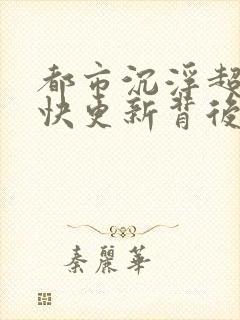 都市沉浮超
快更新背後
秦麗華